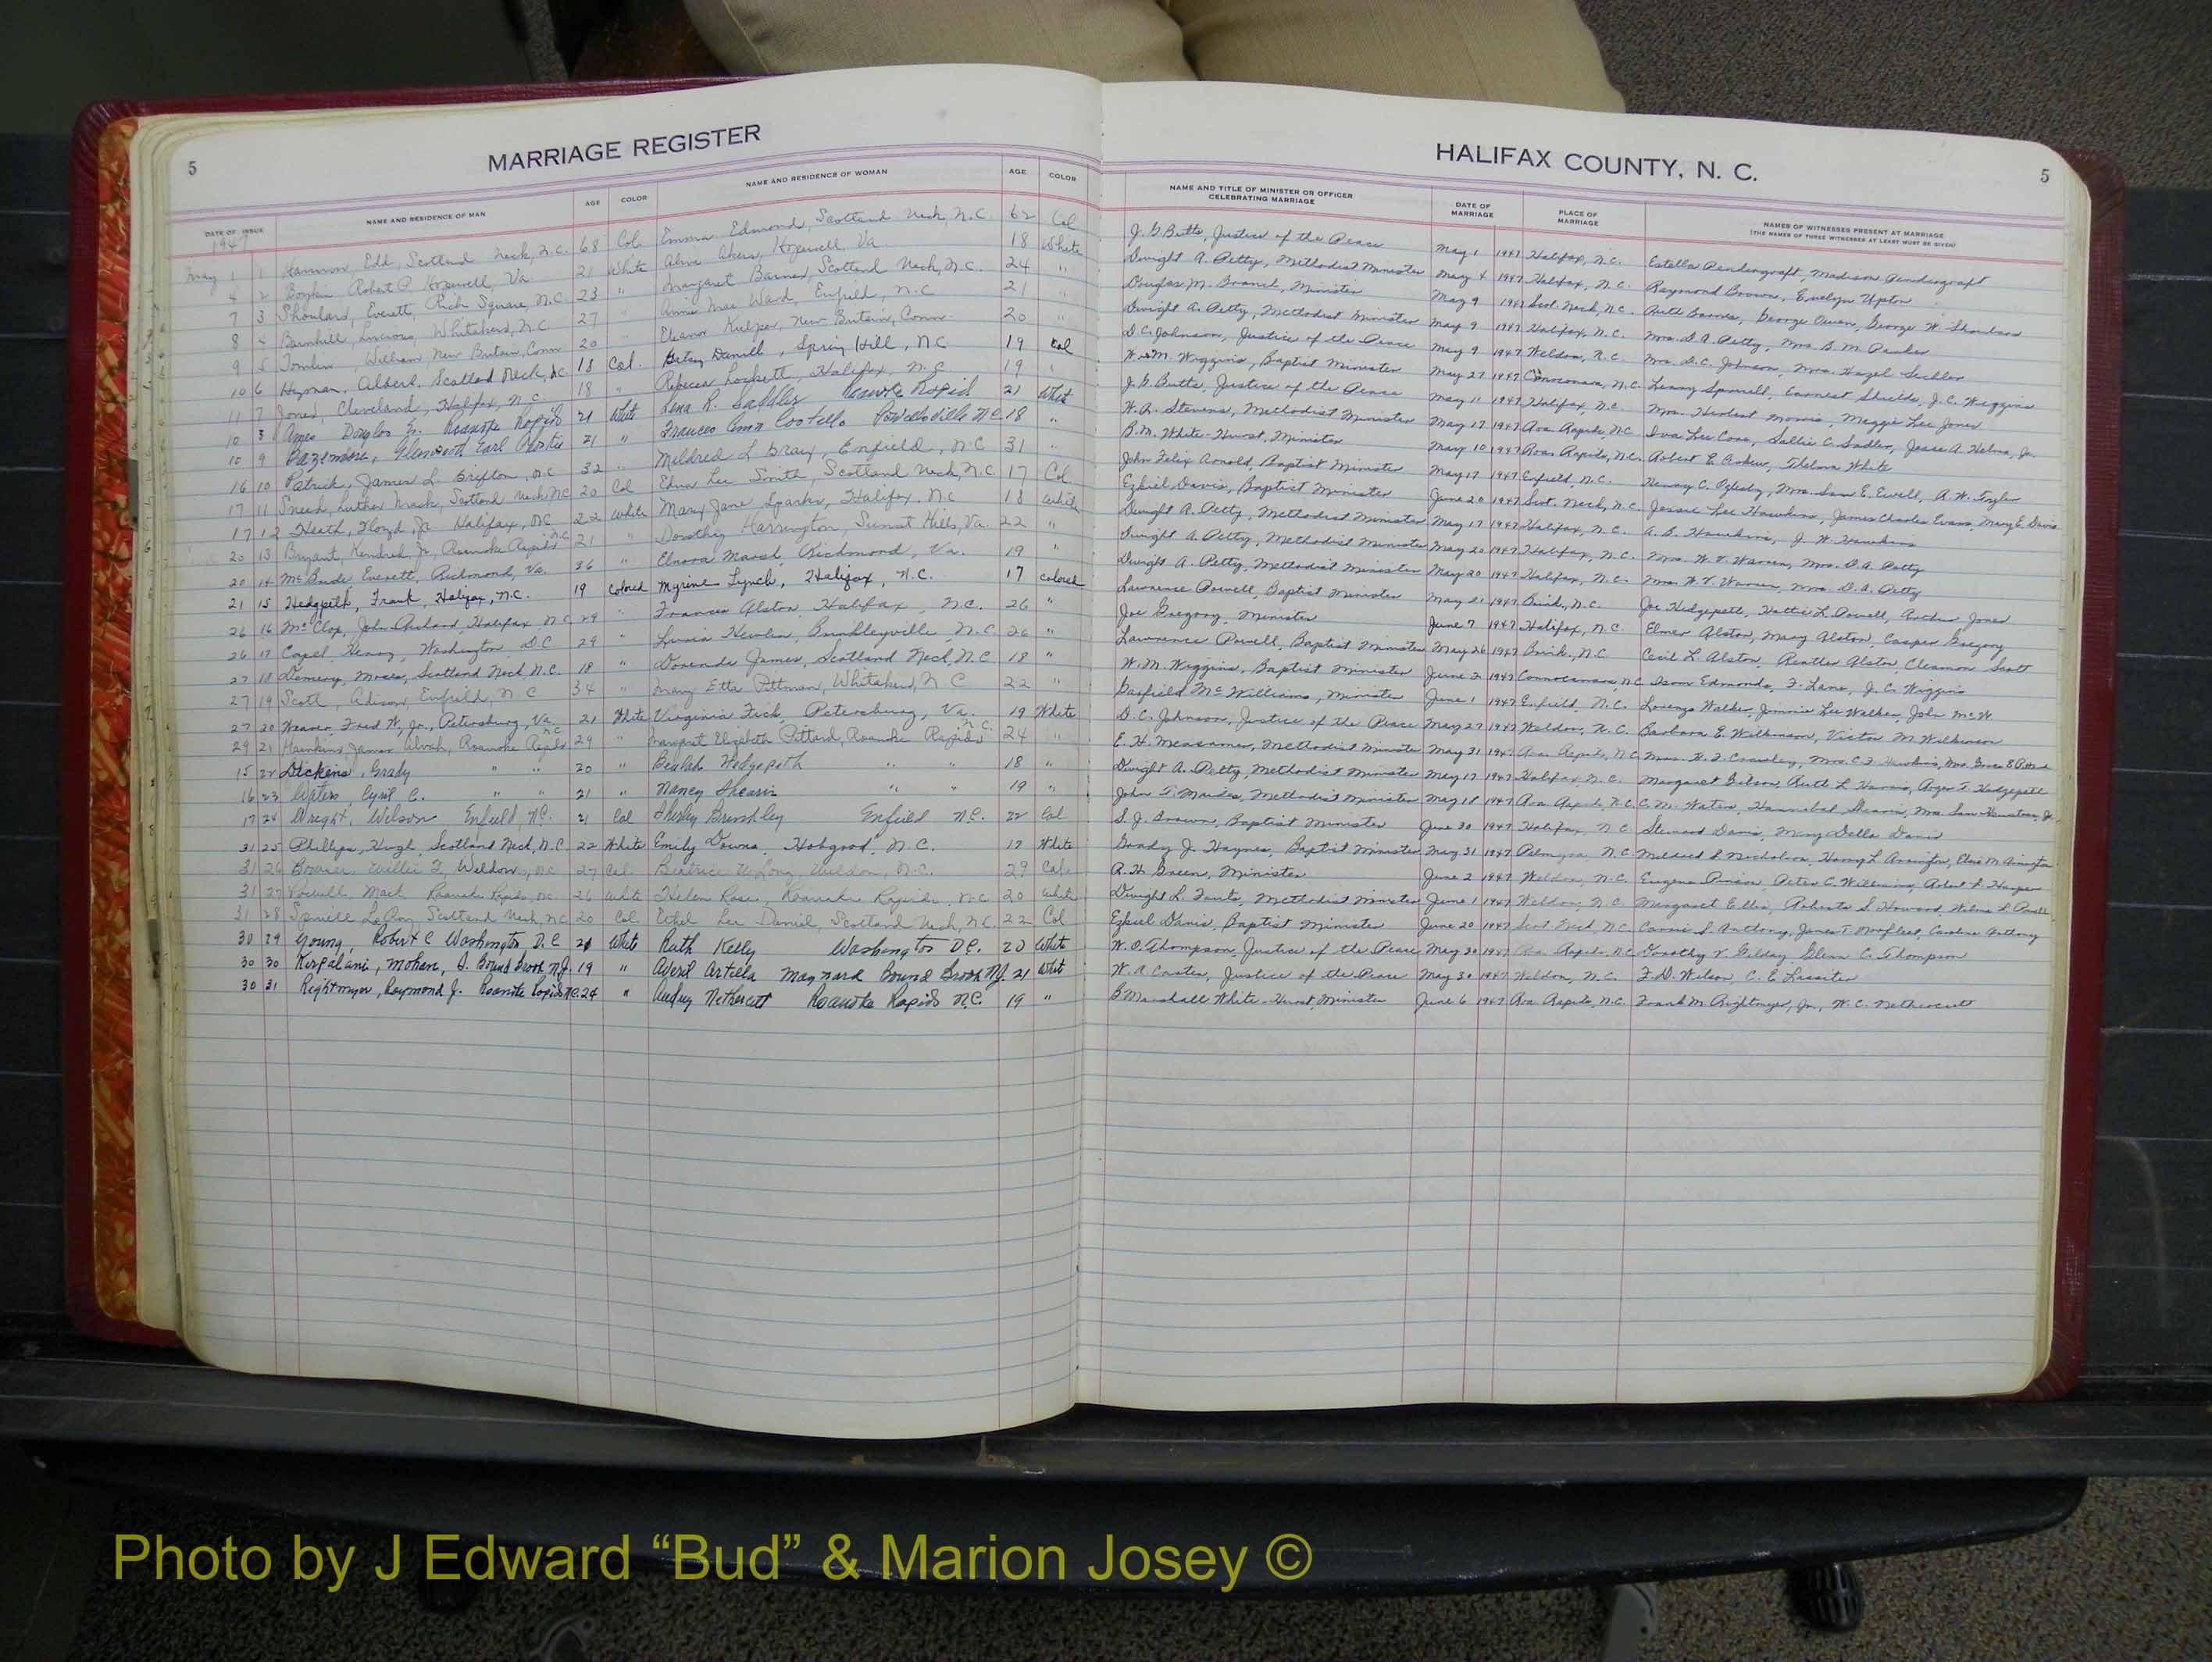 5
MARRIAGE REGISTER
DATE OF ISSUE NAME AND RESIDENCE OF MAN AGE COLOR NAME AND RESIDENCE OF WOMAN AGE COLOR
1947
May 1 1 Harrison, Edd, Scotland Neck, N.C. 68 Col. Emma Edmond, Scotland Neck, N.C. 62 Col
4 2 Boykin Robert P. Hopewell, Va 21 White Akers, Hopewell, Va. 18 White
7 3 Shoulars, Everett, Rich Square, N.C 23 " Margaret Barnes, Scotland Neck, N.C. 24 "
8 4 Barnhill Whitakers, N.C 27 " Annie Mae Ward, Enfield, N.C 21 "
9 5 Tomlin, William New Britain, Conn 20 " Eleanor New Britain, Conn 20 "
10 6 Heyman, Albert, Scotland Neck, N.C 18 Col. Betsy Daniell, Spring Hill, N.C 19 Col
11 7 Jones, Cleveland, Halifax, N.C. 18 " Rebecca Lockett, Halifax, N.C 19 "
10 8 Ames Douglas Roanoke Rapids 21 White Lena R. Saddler Roanoke Rapids 21 White
10 9 Bazemore, Glenwood Earl 21 " Frances Ann Costello Powellsville N.C. 18 "
16 10 Patrick, James L. Grifton, N.C 32 " Mildred L Bray, Enfield, N.C 31 "
17 11 Sneed, Luther Scotland Neck N.C 20 Col Edna Lee Smith, Scotland Neck, N.C 17 Col.
17 12 Heath, Floyd, Jr. Halifax, N.C 22 White Mary Jane Sparks, Halifax, N.C 18 White
20 13 Bryant, Kendrick Jr, Roanoke Rapids N.C 21 " Dorothy Harrington, Sunset Hills, Va. 22 "
20 14 McBride Everett, Richmond, Va. 36 " Elnora Richmond, Va. 19 "
21 15 Hedgpeth, Frank, Halifax, N.C. 19 Colored Myrine Lynch, Halifax, N.C. 17 Colored
26 16 John Halifax N.C 29 " Frances Alston Halifax, N.C. 26 "
26 17 Capel Henry, Washington D.C 29 " Brinkleyville N.C 26 "
27 18 Moses, Scotland Neck N.C. 18 " James, Scotland Neck, N.C. 18 "
27 19 Scott, Enfield, N.C 34 " Mary Etta Pittman, Whitakers, N C 22 "
27 20 Weaver, Fred W, Jr., Petersburg, Va. 21 White Virginia Petersburg, Va. 19 White
29 21 Hawkins James Alvah, Roanoke Rapids N.C 29 " Margaret Elizabeth Pittard, Roanoke Rapids N.C. 24 "
15 22 Dickens, Grady " " 20 " Beulah Hedgepeth " " 18 "
16 23 Waters, Cyril C. " " 21 " Nancy Shearin " " 19 "
17 24 Wright, Wilson Enfield, N.C. 21 Col Shirley Brinkley Enfield N.C. 22 Col
31 25 Phillips, Hugh, Scotland Neck, N.C 22 White Emily Downs, Hobgood, N.C. 17 White
31 26 Willie F. Weldon, N.C 27 Col. Beatrice Long, Weldon, N.C. 29 Col.
31 27 Powell Mack Roanoke Rapids, N.C. 26 White Helen Rose, Roanoke Rapids, N.C. 20 White
31 28 Spruill LeRoy Scotland Neck, N.C 20 Col. Ethel Lee Daniel, Scotland Neck, N.C. 22 Col
30 29 Young, Robert C Washington D.C 21 White Ruth Kelly Washington D.C. 20 White
30 30 Kirpalani, Mohan, S. Bound Brook N.J. 19 " Averil Artella Maynard Bound Brook N.J. 21 White
30 31 Rightmyer, Raymond J. Roanoke Rapids N.C. 24 " Audrey Nethercutt Roanoke Rapids N.C. 19 "
HALIFAX COUNTY, N. C.
5
NAME AND TITLE OF MINISTER OR OFFICER CELEBRATING MARRIAGE DATE OF MARRIAGE PLACE OF MARRIAGE NAMES OF WITNESSES PRESENT AT MARRIAGE
(THE NAMES OF THREE WITNESSES AT LEAST MUST BE GIVEN)
J. G. Butts, Justice of the Peace May 1 1947 Halifax, N.C. Estella Pendergraft, Madison Pendergraft
Dwight A. Petty, Methodist Minister May 4 1947 Halifax, N.C. Raymond Brown, Evelyn Upton
Douglas M. Branch, Minister May 9 1947 Scot. Neck, N.C. Ruth George Owen, George W.
Dwight A. Petty, Methodist Minister May 9 1947 Halifax, N.C. Mrs. D. A. Petty, Mrs. B. M. Parker
D. C. Johnson, Justice of the Peace May 9 1947 Weldon, N.C. Mrs. D. C. Johnson, Mrs. Hazel
W. M. Wiggins, Baptist Minister May 27 1947 Connoconara, N.C. Spruill, Earnest Shields, J. C. Wiggins
J. G. Butts, Justice of the Peace May 11 1947 Halifax, N.C. Mrs. Herbert Morris, Maggie Lee Jones
W. R. Stevens, Methodist Minister May 17 1947 Roa. Rapids, N.C. Iva Lee Cone, Sallie C. Sadler, Jesse A. Helms, Jr.
B. M. White-Hurst, Minister May 10 1947 Roa. Rapids, N.C. Robert E. Thelma White
John Felix Arnold, Baptist Minister May 17 1947 Enfield, N.C. Henry C. Oglesby, Mrs. Sam E. Ewell, A. W. Tyler
Eziel Davis, Baptist Minister June 20 1947 Scot. Neck, N.C. Jessie Lee Hawkins, James Charles Evans, Mary E. Davis
Dwight A. Petty, Methodist Minister May 17 1947 Halifax, N.C. A. B. Hawkins, J. W. Hawkins
Dwight A. Petty, Methodist Minister May 20 1947 Halifax, N.C. Mrs. W. T. Warren, Mrs. D. A. Petty
Dwight A. Petty, Methodist Minister May 20 1947 Halifax, N.C. Mrs. W. T. Warren, Mrs. D. A. Petty
Lawrence Powell, Baptist Minister May 21 1947 Brink., N.C. Joe Hedgepeth, Hattie L. Powell, Jones
Joe Gregory, Minister June 7 1947 Halifax, N.C. Elmer Alston, Mary Alston, Casper Gregory
Lawrence Powell, Baptist Minister May 26 1947 Brink., N.C. Cecil L. Alston, Alston, Scott
W. M. Wiggins, Baptist Minister June 2 1947 Connoconara, N.C. Isom Edmonds, F. Lane, J. C. Wiggins
Garfield McWilliams, Minister June 1 1947 Enfield, N.C. Lorenzo Walker, Jimmie Lee Walker, John McW
D. C. Johnson, Justice of the Peace May 27 1947 Weldon, N.C. Barbara E. Wilkinson, Victor M. Wilkinson
E. H. Measamer, Methodist Minister May 31 1947 Roa. Rapids, N.C. Mrs. H. F. Crawley, Mrs. C. F. Hawkins, Mrs.
Dwight A. Petty, Methodist Minister May 17 1947 Halifax, N.C. Margaret Gibson, Ruth L. Harris, Roger T. Hedgepeth
John T. Maides, Methodist Minister May 18 1947 Roa. Rapids, N.C. C. M. Waters, Hannibal Shearin, Mrs. Sam Jr.
S. J. Brown, Baptist Minister June 30 1947 Halifax, N.C. Steward Davis, Mary Della Davis
Grady J. Haynes, Baptist Minister May 31 1947 Palmyra, N.C. Mildred S. Nicholson, Harry L. Arrington, Elsie M. Arrington
R. H. Green, Minister June 2 1947 Weldon, N.C. Eugene Peter C. Williams, Robert L. Harper
Dwight L. Fouts, Methodist Minister June 1 1947 Weldon, N.C. Margaret Ellis, Roberta S. Howard, Wilma L. Powell
Eziel Davis, Baptist Minister June 20 1947 Scot Neck N.C. Carrie S. Anthony, James T. Norfleet, Caroline Anthony
W. O. Thompson, Justice of the Peace May 30 1947 Roa. Rapids, N.C. Dorothy V. Gilday Glenn C. Thompson
W. A. Carter, Justice of the Peace May 30 1947 Weldon, N.C. F. D. Wilson, C. E. Lassiter
B. Marshall White-Hurst, Minister June 6 1947 Roa. Rapids, N.C. Frank M. Rightmyer, Jr., W. C. Nethercutt
Photo by J Edward “Bud” & Marion Josey ©